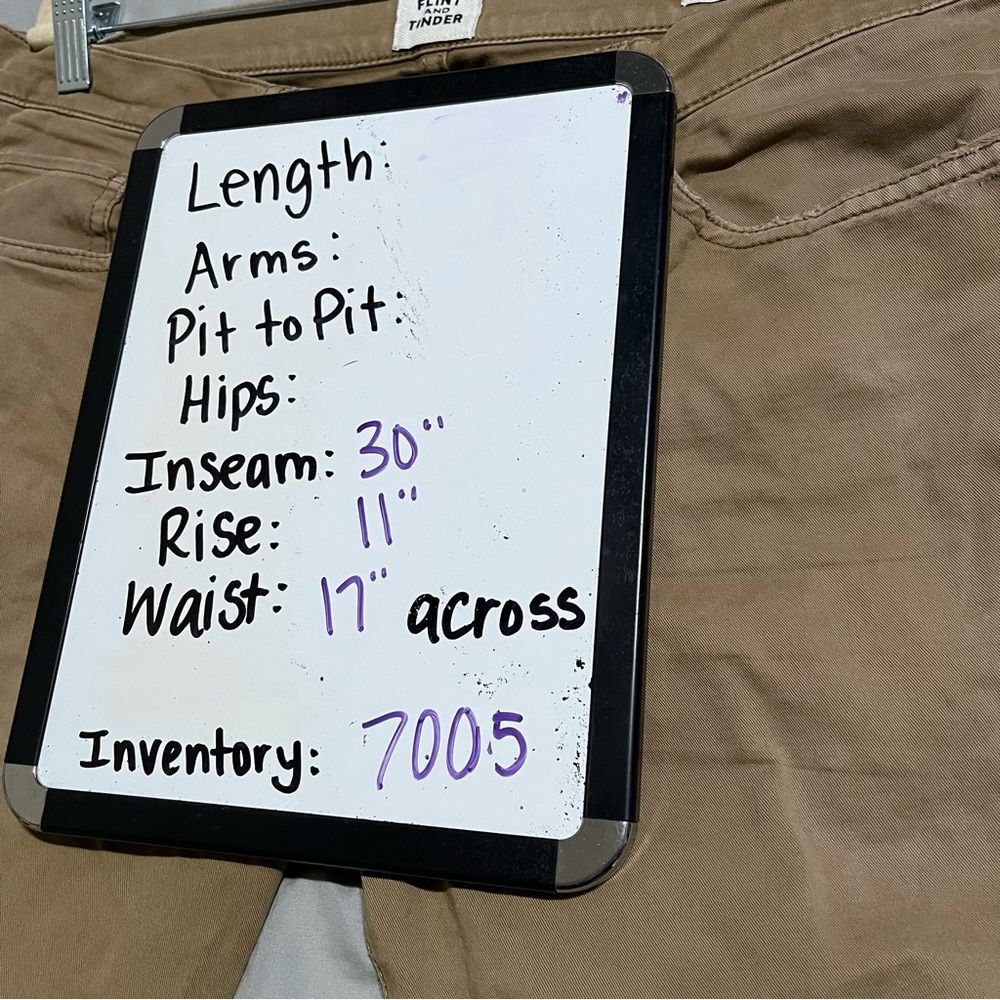 FLINT
AND
TINDER
Length:
Arms:
Pit to Pit:
Hips:
Inseam: 30"
Rise: 11"
Waist: 17" across
Inventory: 7005